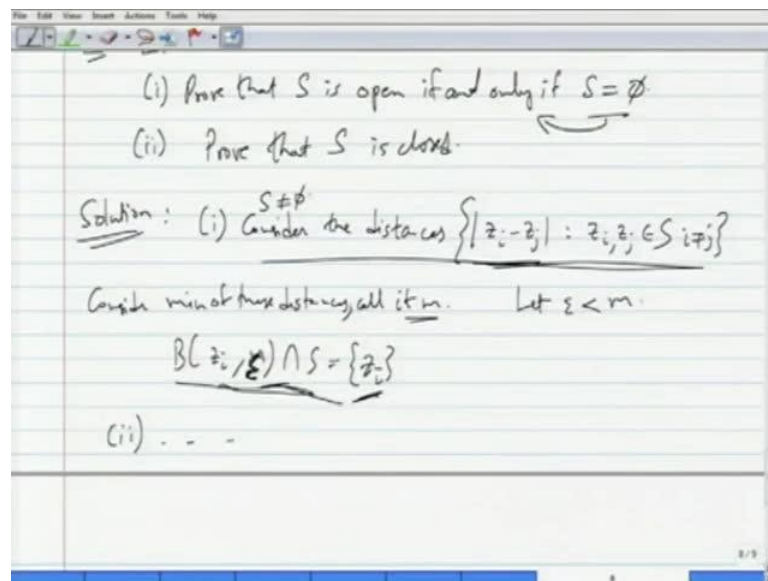 File Edit View Insert Actions Tools Help
(i) Prove that S is open if and only if S = ∅.
(ii) Prove that S is closed.
S ≠ ∅
Solution : (i) Consider the distances {|z_i - z_j| : z_i, z_j ∈ S i≠j}
Consider min of these distances, call it m. Let ε < m.
B(z_i, ε) ∩ S = {z_i}
(ii) . - -
8/9